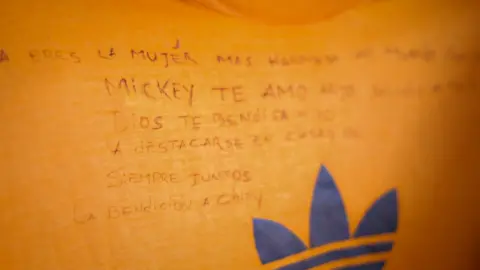 A ERES LA MUJER MAS HERMOSA
MICKEY TE AMO
DIOS TE BENDIGA
A DESTACARSE EN COSAS DE
SIEMPRE JUNTOS
LA BENDICION A